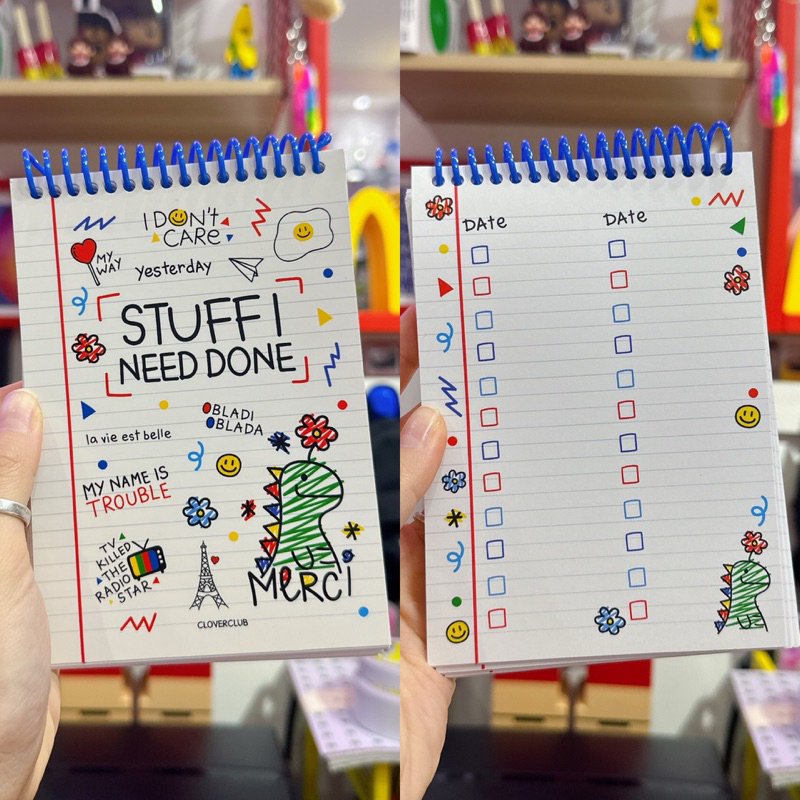 I DON't
CARE
MY
WAY
yesterday
STUFF I
NEED DONE
BLADI
BLADA
la vie est belle
MY NAME IS
TROUBLE
TV
KILLED
THE
RADIO
STAR
MERCI
CLOVERCLUB
DAte DAte